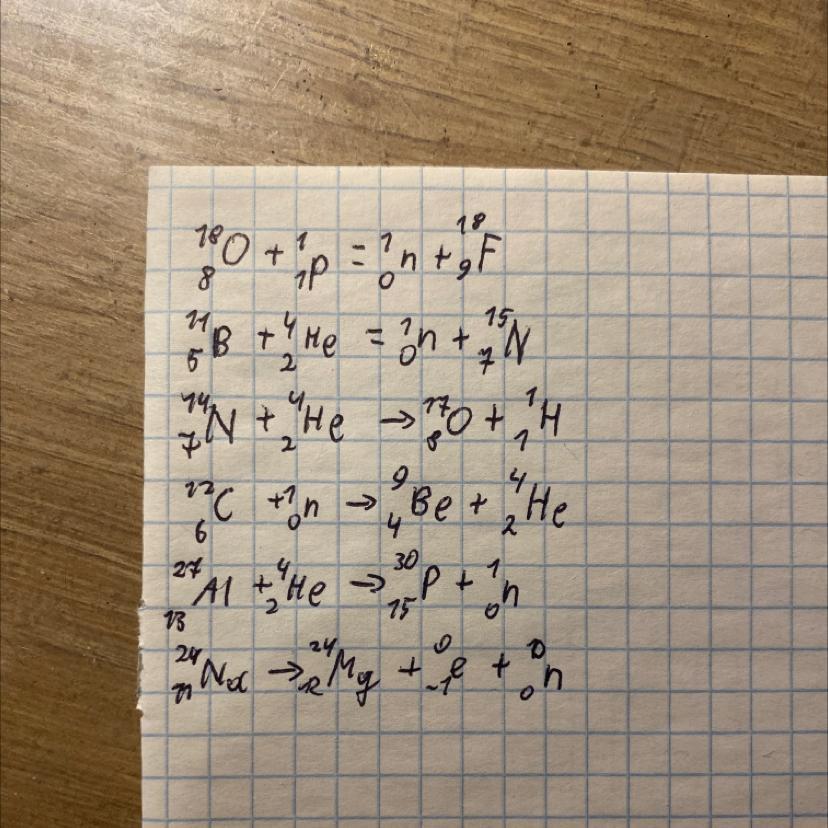 ¹⁸₈O + ¹₁p = ¹₀n + ¹⁸₉F
¹¹₅B + ⁴₂He = ¹₀n + ¹⁵₇N
¹⁴₇N + ⁴₂He → ¹⁷₈O + ¹₁H
¹²₆C + ¹₀n → ⁹₄Be + ⁴₂He
²⁷₁₃Al + ⁴₂He → ³⁰₁₅P + ¹₀n
²⁴₁₁Na → ²⁴₁₂Mg + ⁰₋₁e + ⁰₀n